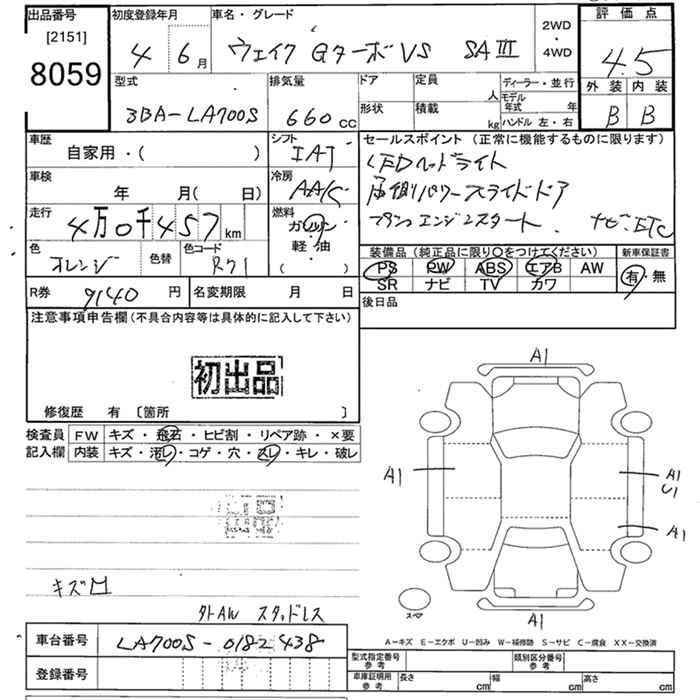 出品番号
[2151]
8059
初度登録年月
4 6月
車名・グレード
ウェイク Gターボ VS SAⅢ
2WD
・
4WD
評価点
4.5
外装 内装
B B
型式
3BA-LA700S
排気量
660 cc
ドア
定員
人
形状
積載
kg
ディーラー・並行
モデル年式 年
ハンドル 左・右
車歴
自家用・( )
シフト
IAT
セールスポイント (正常に機能するものに限ります)
LEDヘッドライト
両側パワースライドドア
プッシュエンジンスタート. ナビ. ETC
車検
年 月( 日)
冷房
AAC
走行
4万0千457km
燃料
ガソリン
軽・油
( )
色
オレンジ
色替
色コード
R71
装備品 (純正品に限り○をつけてください)
PS PW ABS エアB AW
SR ナビ TV カワ
新車保証書
有・無
R券 9140 円
名変期限 月 日
後日品
注意事項申告欄(不具合内容等は具体的に記入して下さい)
初出品
修復歴 有 [箇所 ]
検査員
記入欄
FW キズ・飛石・ヒビ割・リペア跡・×要
内装 キズ・汚レ・コゲ・穴・スレ・キレ・破レ
キズ凹
外AW スタッドレス
A1
A1
A1
U1
A1
A1
スペア
A-キズ E-エクボ U-凹み W-補修跡 S-サビ C-腐食 XX-交換済
車台番号 LA700S-0182438
登録番号
型式指定番号
参考
類別区分番号
参考
車庫証明用
参考
長さ cm 幅 cm 高さ cm